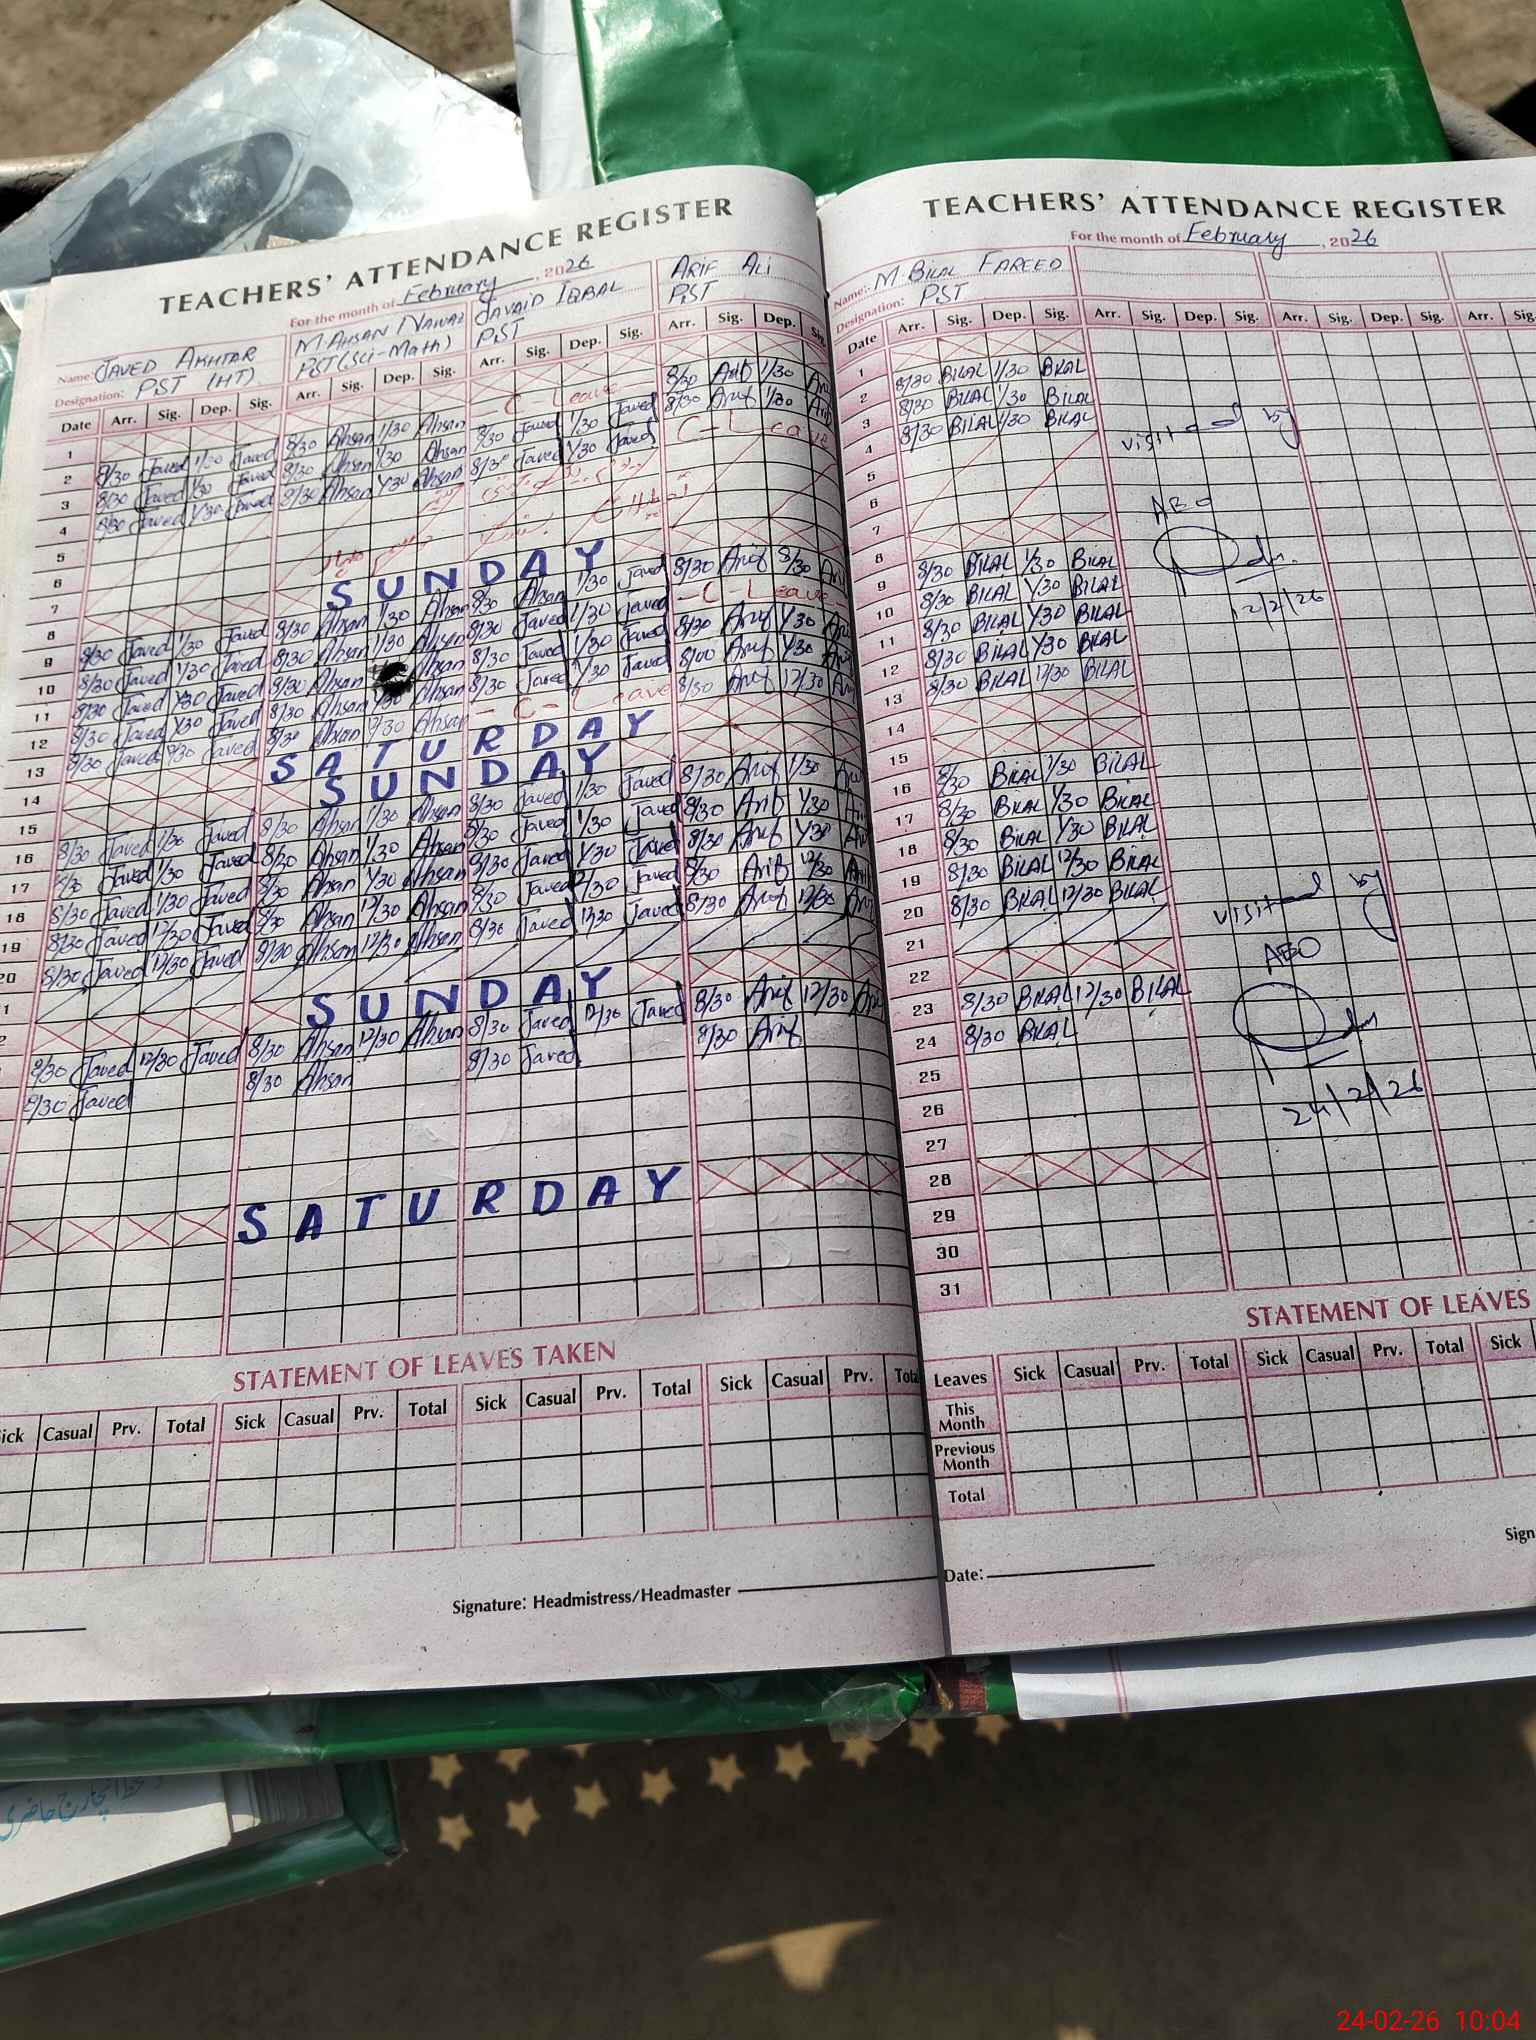 TEACHERS' ATTENDANCE REGISTER
For the month of February, 2026
Name: JAVED AKHTAR M. AHSAN NAWAZ JAVAID IQBAL ARIF ALI
Designation: PST (HT) PST (Sci-Math) PST PST
Date Arr. Sig. Dep. Sig. Arr. Sig. Dep. Sig. Arr. Sig. Dep. Sig. Arr. Sig. Dep. Sig.
1
2 8/30 Javed 1/30 Javed 8/30 Ahsan 1/30 Ahsan C Leave 8/30 Arif 1/30
3 8/30 Javed 1/30 Javed 8/30 Ahsan 1/30 Ahsan 8/30 Javed 1/30 Javed 8/30 Arif 1/30
4 8/30 Javed 1/30 Javed 8/30 Ahsan 1/30 Ahsan 8/30 Javed 1/30 Javed C-Leave
5
6
7
8 SUNDAY
9 8/30 Javed 1/30 Javed 8/30 Ahsan 1/30 Ahsan 8/30 Ahsan 1/30 Javed 8/30 Arif 8/30
10 8/30 Javed 1/30 Javed 8/30 Ahsan 1/30 Ahsan 8/30 Javed 1/30 Javed -C-Leave-
11 8/30 Javed 1/30 Javed 8/30 Ahsan Ahsan 8/30 Javed 1/30 Javed 8/30 Arif 1/30
12 8/30 Javed 1/30 Javed 8/30 Ahsan 1/30 Ahsan 8/30 Javed 1/30 Javed 8/00 Arif 1/30
13 8/30 Javed Javed 8/30 Ahsan Ahsan -C-Leave 8/30 Arif 12/30
14 SATURDAY
15 SUNDAY
16 8/30 Javed 1/30 Javed 8/30 Ahsan 1/30 Ahsan 8/30 Javed 1/30 Javed 8/30 Arif 1/30
17 8/30 Javed 1/30 Javed 8/30 Ahsan 1/30 Ahsan 8/30 Javed 1/30 Javed 8/30 Arif 1/30
18 8/30 Javed 1/30 Javed 8/30 Ahsan 1/30 Ahsan 8/30 Javed 1/30 Javed 8/30 Arif 1/30
19 8/30 Javed 12/30 Javed 8/30 Ahsan 12/30 Ahsan 8/30 Javed 12/30 Javed 8/30 Arif 12/30 Arif
20 8/30 Javed 12/30 Javed 8/30 Ahsan 12/30 Ahsan 8/30 Javed 12/30 Javed 8/30 Arif 12/30
SUNDAY
8/30 Javed 12/30 Javed 8/30 Ahsan 12/30 Ahsan 8/30 Javed 12/30 Javed 8/30 Arif 12/30 Arif
8/30 Javed 8/30 Ahsan 8/30 Javed 8/30 Arif
SATURDAY
STATEMENT OF LEAVES TAKEN
Sick Casual Prv. Total Sick Casual Prv. Total Sick Casual Prv. Total Sick Casual Prv. Total
Signature: Headmistress/Headmaster
TEACHERS' ATTENDANCE REGISTER
For the month of February, 2026
Name: M. BILAL FAREED
Designation: PST
Date Arr. Sig. Dep. Sig. Arr. Sig. Dep. Sig. Arr. Sig. Dep. Sig. Arr. Sig.
1
2 8/30 BILAL 1/30 BILAL
3 8/30 BILAL 1/30 BILAL
4 8/30 BILAL 1/30 BILAL
visited by
5
6
7
AEO
8
9 8/30 BILAL 1/30 BILAL
10 8/30 BILAL 1/30 BILAL
12/2/26
11 8/30 BILAL 1/30 BILAL
12 8/30 BILAL 1/30 BILAL
13 8/30 BILAL 12/30 BILAL
14
15
16 8/30 BILAL 1/30 BILAL
17 8/30 BILAL 1/30 BILAL
18 8/30 BILAL 1/30 BILAL
19 8/30 BILAL 12/30 BILAL
20 8/30 BILAL 12/30 BILAL
visited by
21
AEO
22
23 8/30 BILAL 12/30 BILAL
24 8/30 BILAL
25
26
24/2/26
27
28
29
30
31
STATEMENT OF LEAVES
Leaves Sick Casual Prv. Total Sick Casual Prv. Total Sick
This Month
Previous Month
Total
Date:
24-02-26 10:04